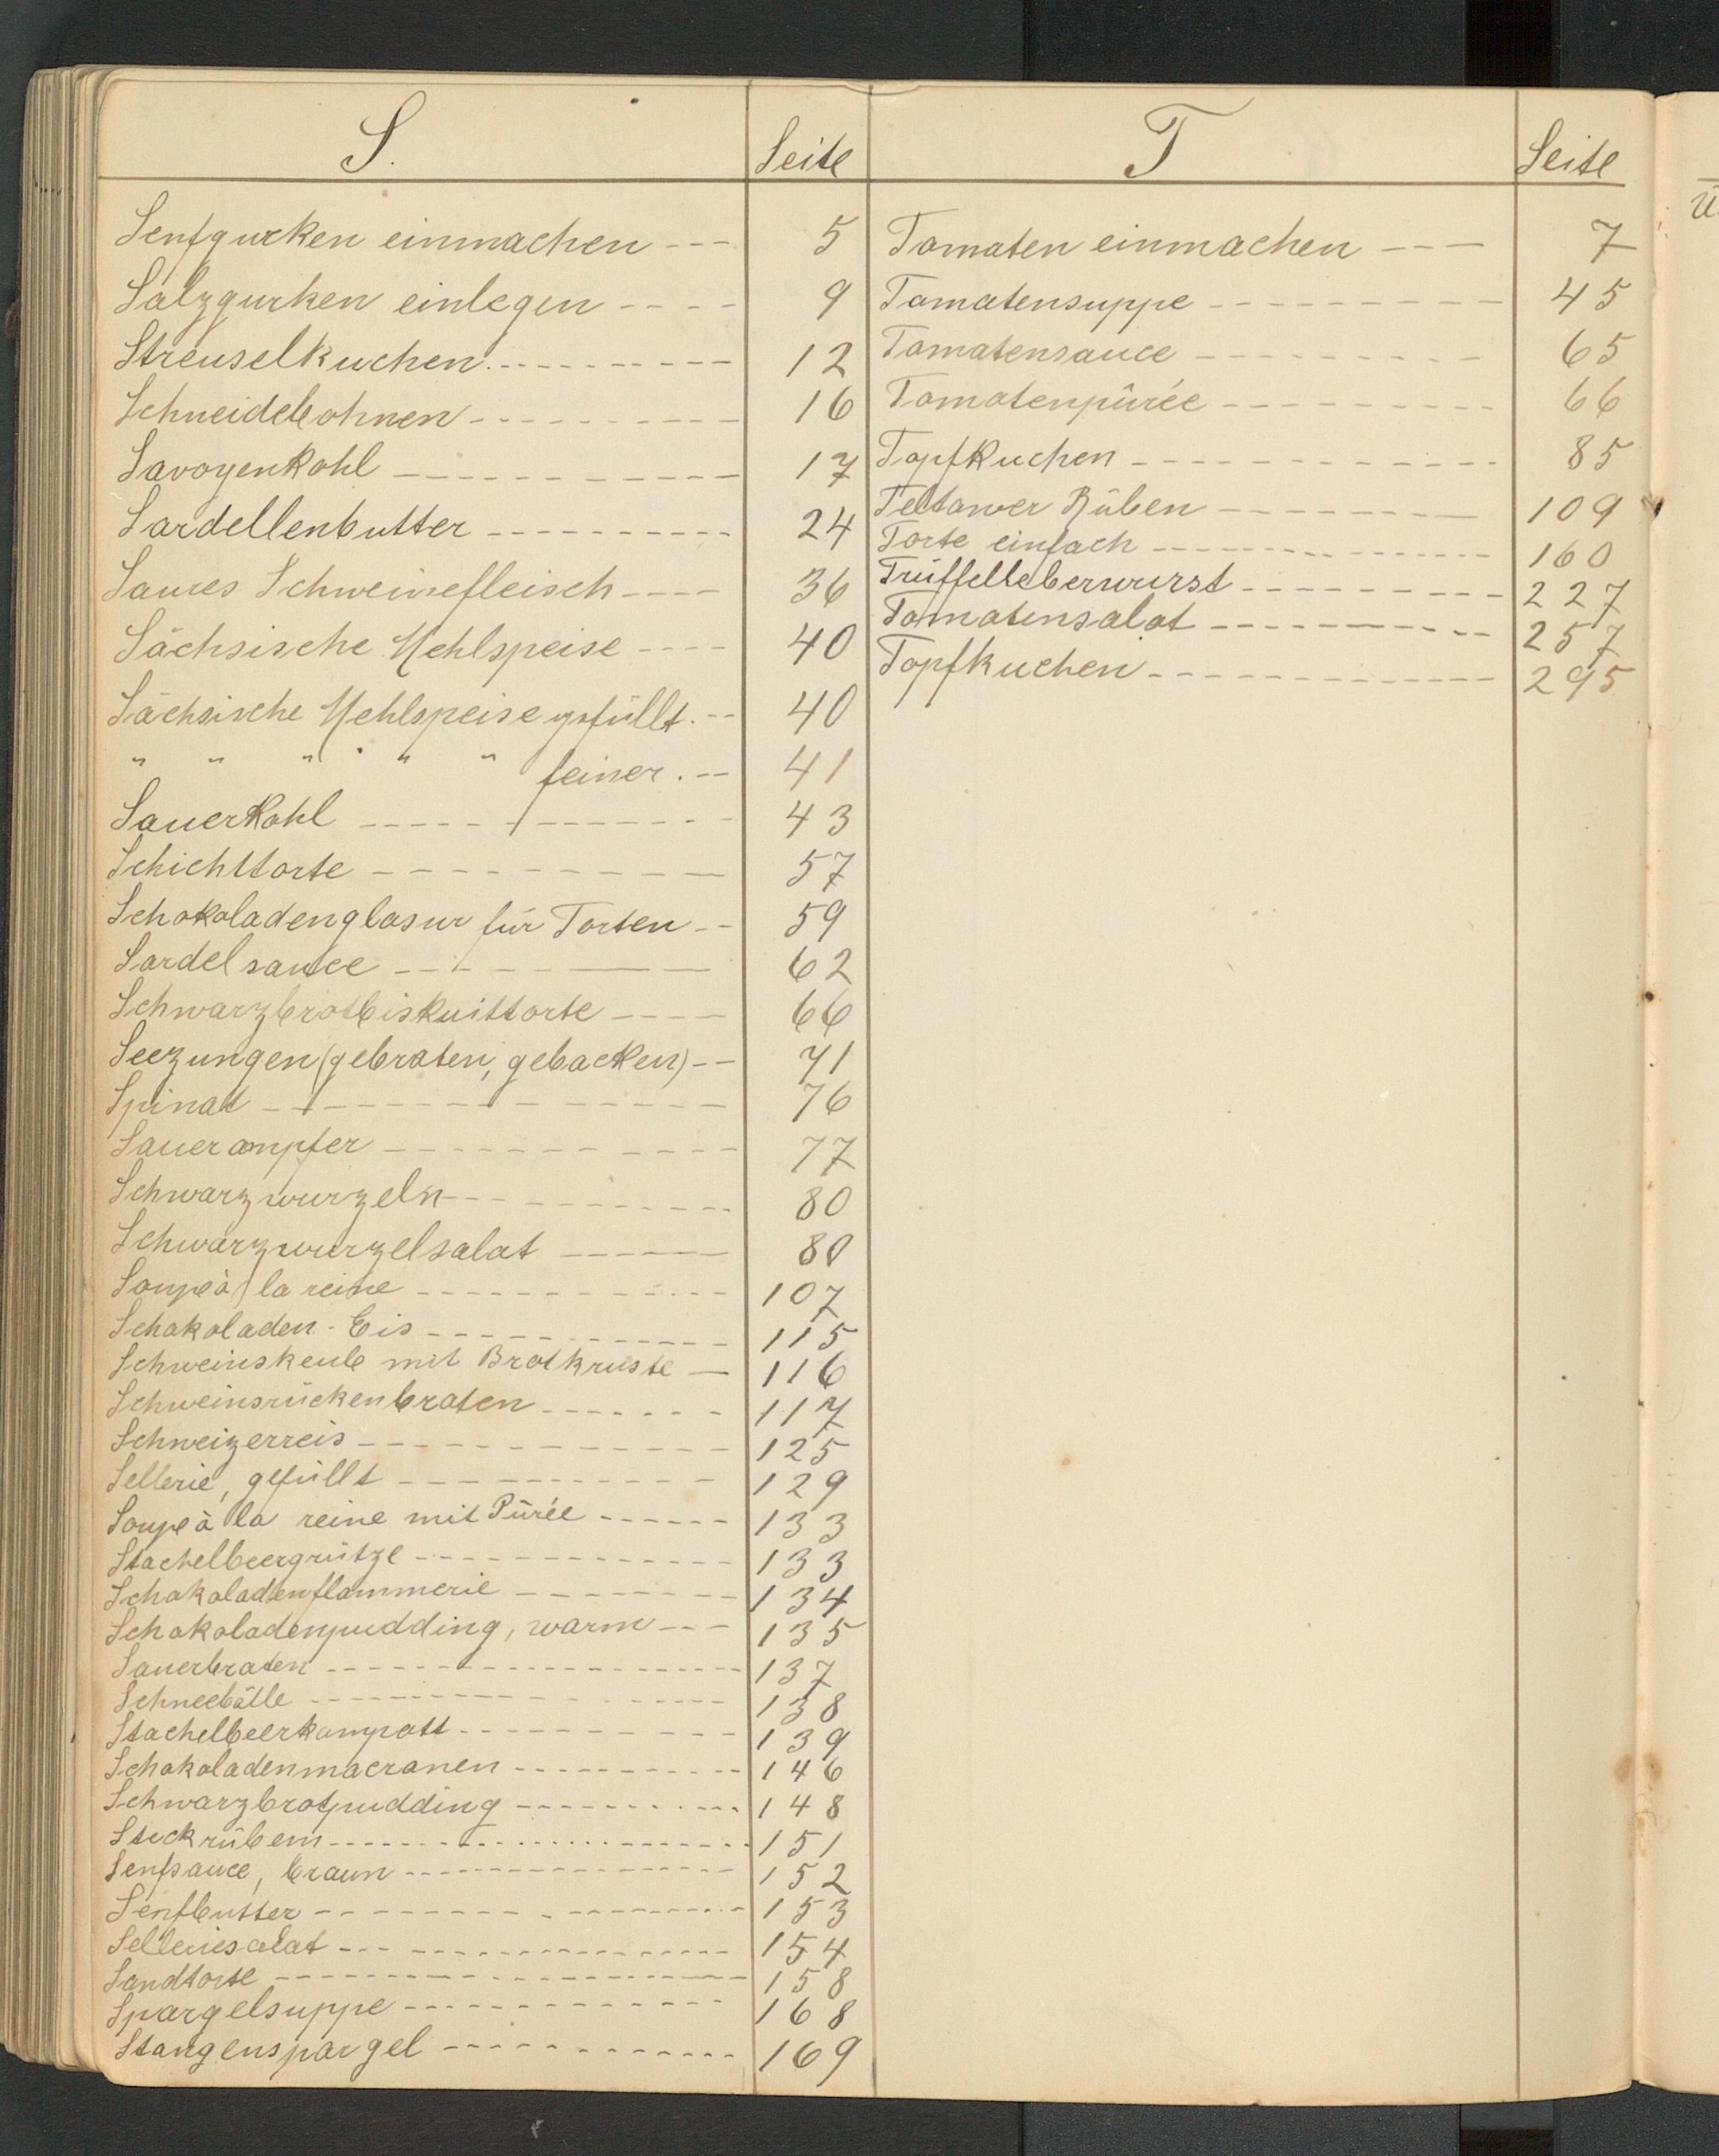 S.
Seite
Senfgurken einmachen --- 5
Salzgurken einlegen ---- 9
Streuselkuchen. --------- 12
Schneidebohnen --------- 16
Savoyenkohl ---------- 17
Sardellenbutter --------- 24
Saures Schweinefleisch ---- 36
Sächsische Mehlspeise ---- 40
Sächsische Mehlspeise gefüllt. -- 40
" " " " " feiner. -- 41
Sauerkohl ---------- 43
Schichttorte --------- 57
Schokoladenglasur für Torten -- 59
Sardelsauce -------- 62
Schwarzbrotbiskuittorte ---- 66
Seezungen (gebraten, gebacken) -- 71
Spinat ----------- 76
Sauerampfer ---------- 77
Schwarzwurzeln --------- 80
Schwarzwurzelsalat ----- 80
Soupe à la reine ---------- 107
Schokoladen-Eis ---------- 115
Schweinskeule mit Brotkruste -- 116
Schweinsrückenbraten ------- 117
Schweizerreis ----------- 125
Sellerie, gefüllt --------- 129
Soupe à la reine mit Pürée ------ 133
Stachelbeergrütze ------------ 133
Schokoladenflammerie -------- 134
Schokoladenpudding, warm --- 135
Sauerbraten ---------------- 137
Schneebälle --------------- 138
Stachelbeerkompott ---------- 139
Schokoladenmacronen ---------- 146
Schwarzbrotpudding ---------- 148
Steckrübem ------------------ 151
Senfsauce, braun --------------- 152
Senfbutter ----------------- 153
Selleriesalat ---------------- 154
Sandtorte ------------------- 158
Spargelsuppe ------------- 168
Stangenspargel ------------ 169
T
Seite
Tomaten einmachen --- 7
Tomatensuppe --------- 45
Tomatensauce --------- 65
Tomatenpürée --------- 66
Topfkuchen ------------ 85
Teltower Rüben -------- 109
Torte einfach -------------- 160
Trüffelleberwurst --------- 227
Tomatensalat ---------- 257
Topfkuchen ------------ 295